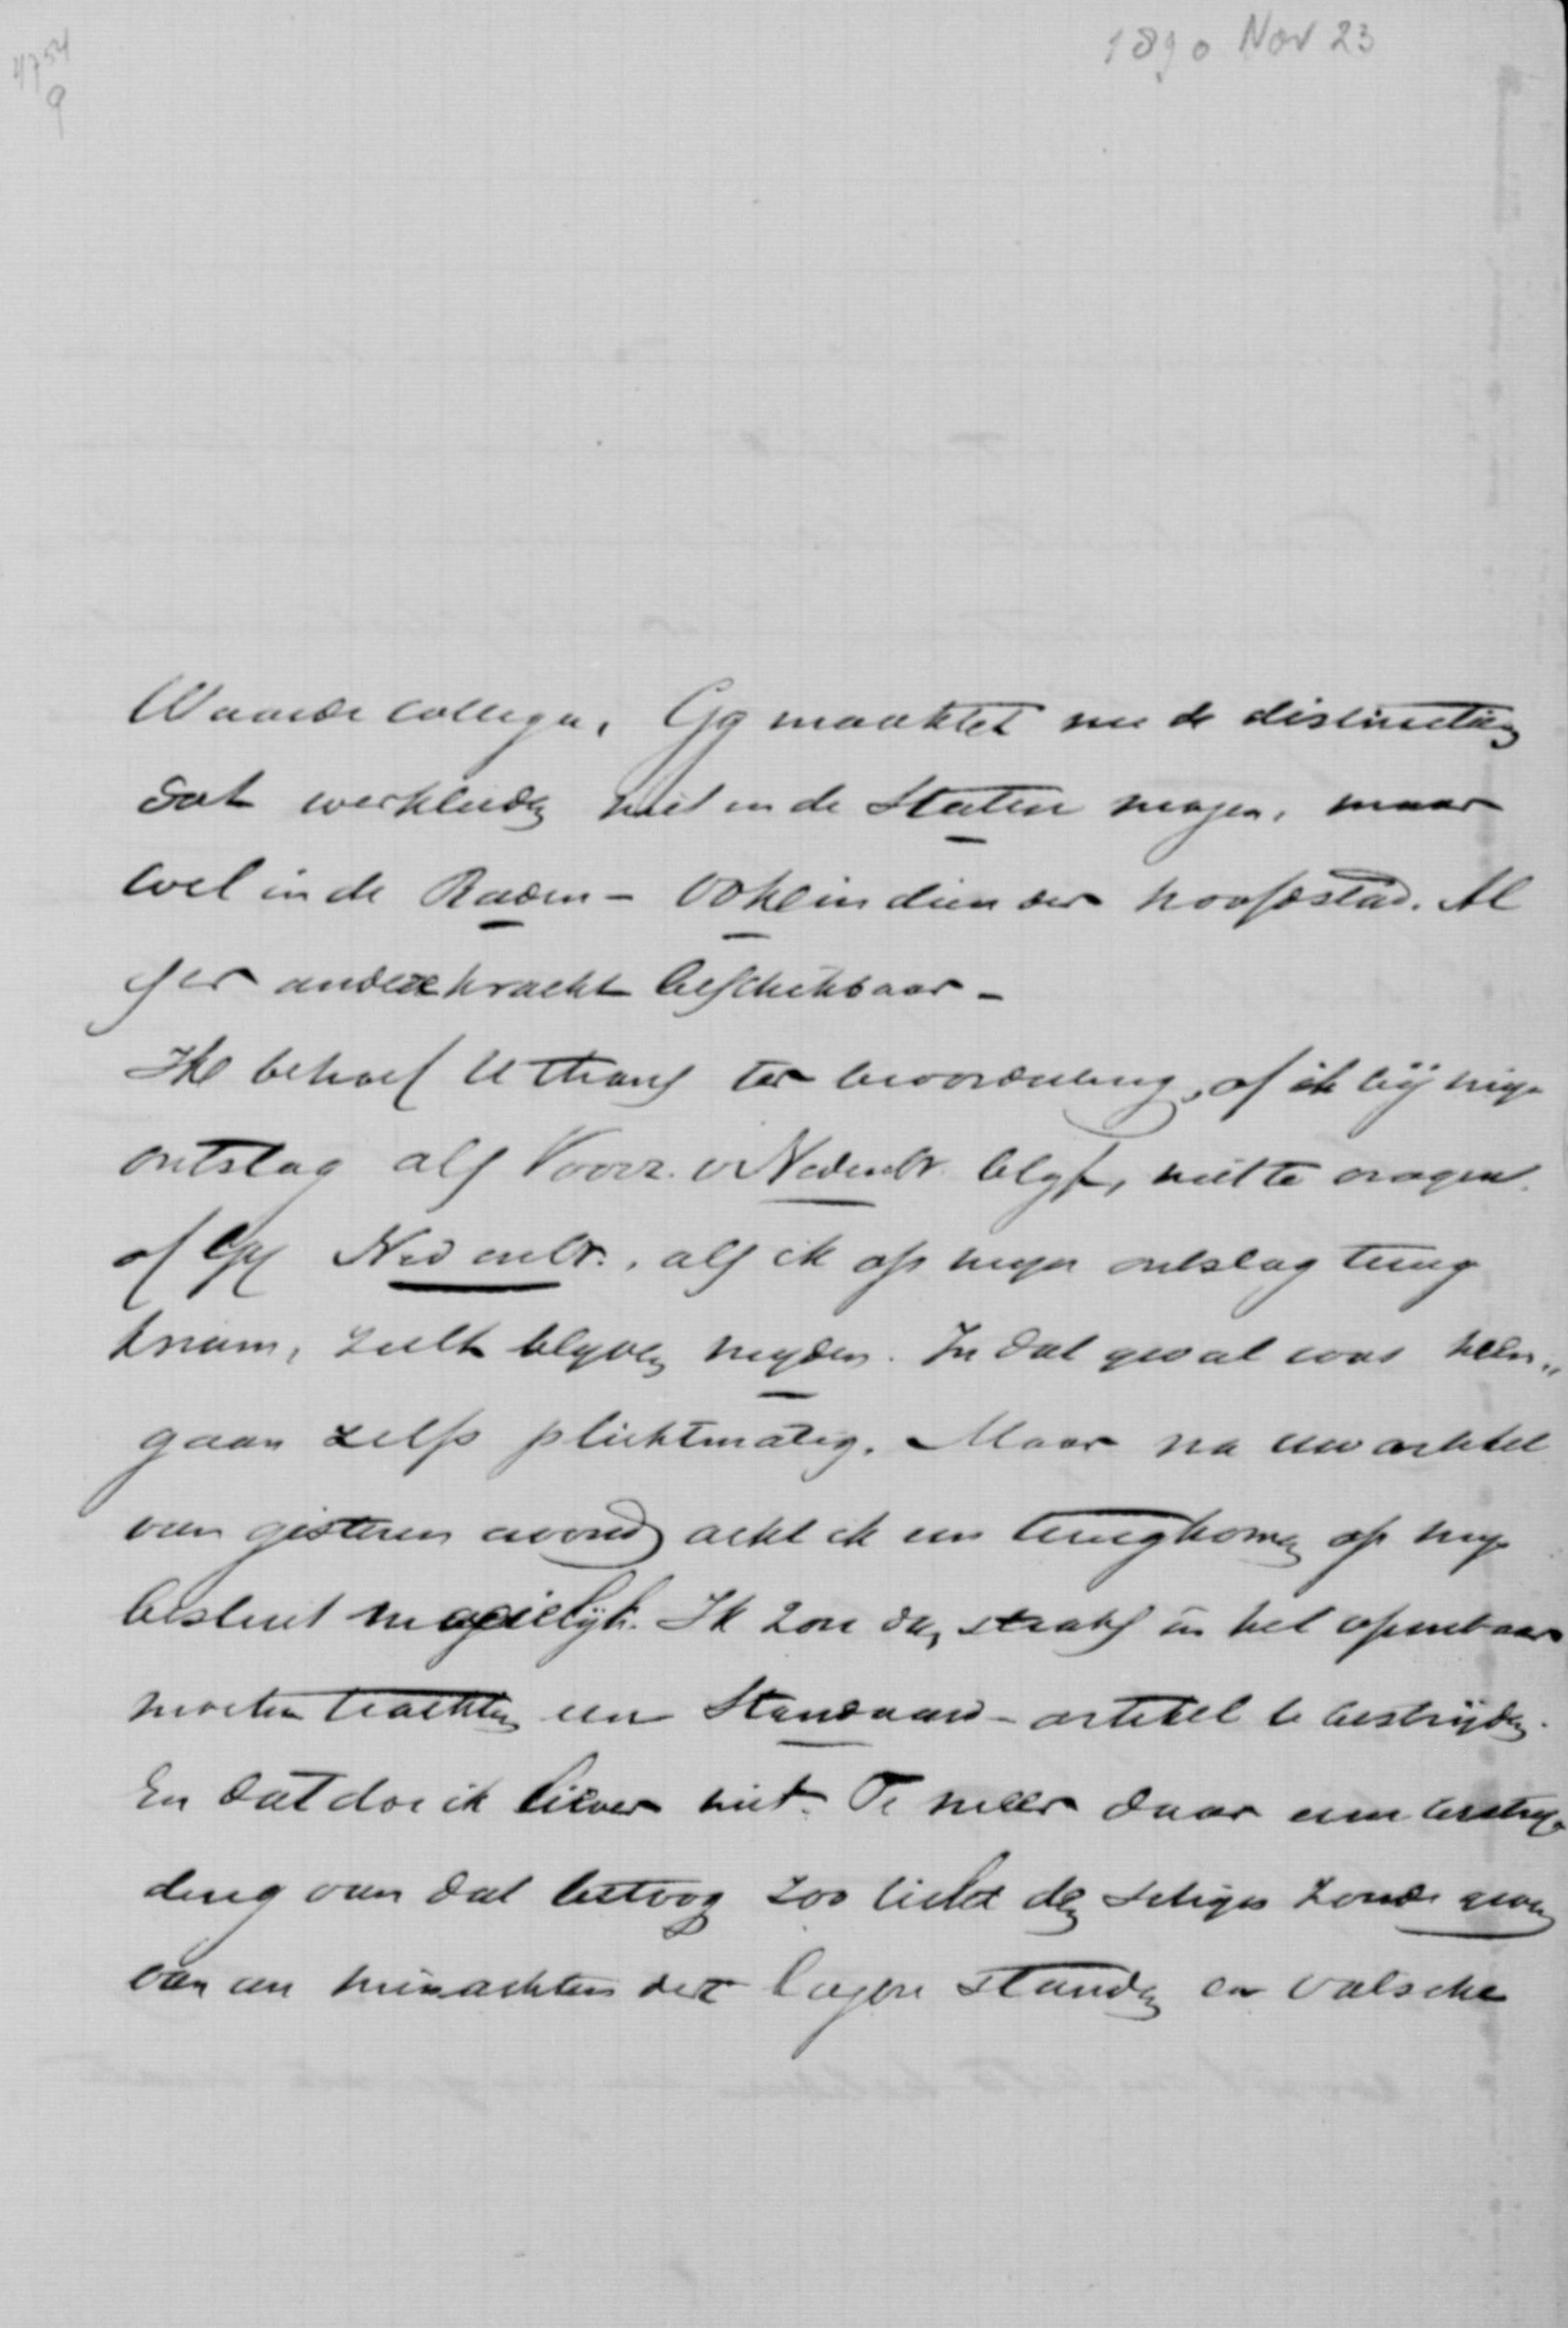 4754
9
1890 Nov 23
Waarde Collega, Gy maaktet nu de distinctie
dat werklieden niet in de Staten mogen, maar
wel in de Raden – Ook in dien der hoofdstad. Al
is er andere kracht beschikbaar –
Ik behoef U thans ter beoordeeling, of ik bij mijn
ontslag als Voorz. v Nederl. blyf, niet te vragen
of Gy Ned en Or., als ik op myn ontslag terug
kwam, zult blyven myden. In dat geval was heen-
gaan zelfs plichtmatig. Maar na uw artikel
van gisteren avond acht ik een terugkomen op myn
besluit moeielyk. Ik zou dan straks in het openbaar
moeten trachten een Standaard-artikel te bestrijden.
En dat doe ik liever niet. Te meer daar een bestry-
ding van dat betoog zoo licht den schyn zoude geven
van een minachten der lagere standen en valsche